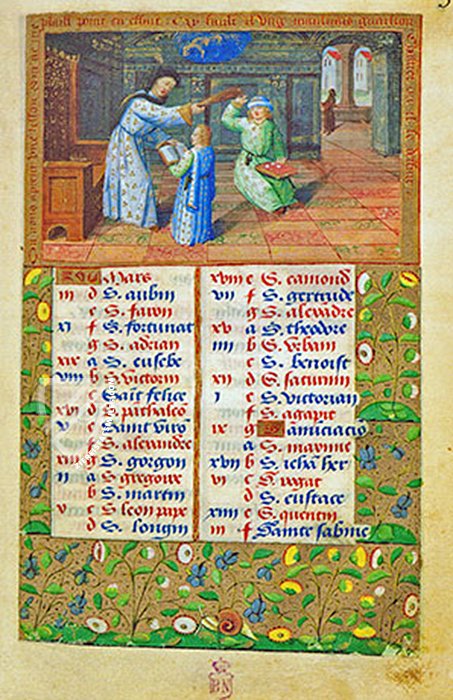 plaist point en estuit
Mars
iii d S. aubin
e S. favn
xi f S. fortunat
g S. adrian
xix a S. eusebe
viii b S. victorin
c sait felice
xvi d S. pathaleo
v e Saint Viro
f S. alexandre
xiii g S. gorgon
ii a S. gregoire
b S. martin
x c S. leon pape
d S. longin
xviii e S. eamond
vii f S. gertrude
g S. alexadre
xv a S. theodore
iiii b S. Urbain
c S. benoist
xii d S. saturnin
i e S. victorian
f S. agapit
ix g anuciacio
a S. maxime
xvii b S. iehā her
vi c S. rogat
d S. eustace
xiiii e S. quentin
iii f Sainte sabine
BN